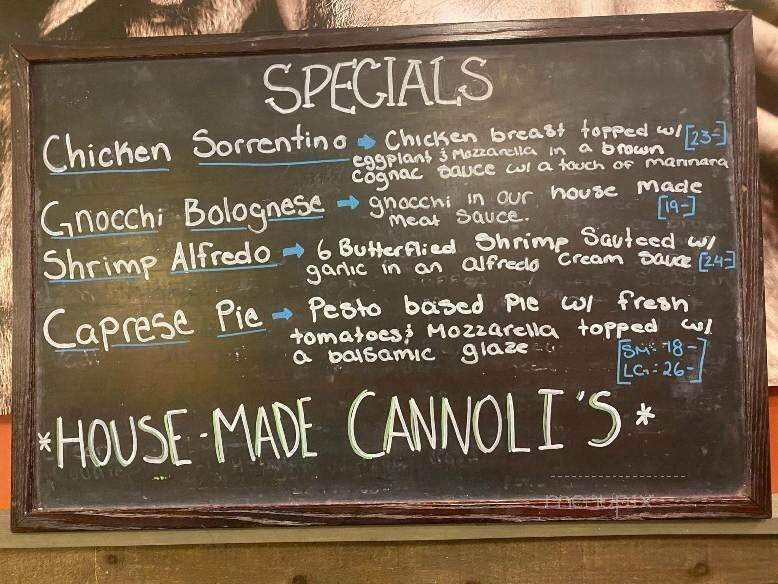 SPECIALS
Chicken Sorrentino → Chicken breast topped w/ [23-]
eggplant & Mozzarella in a brown
cognac sauce w/ a touch of marinara
Gnocchi Bolognese → gnocchi in our house made
meat sauce. [19-]
Shrimp Alfredo → 6 Butterflied Shrimp Sauteed w/
garlic in an alfredo cream sauce [24-]
Caprese Pie → Pesto based Pie w/ fresh
tomatoes & Mozzarella topped w/
a balsamic glaze [SM: 18-
LG: 26-]
*HOUSE-MADE CANNOLI'S*
menupix